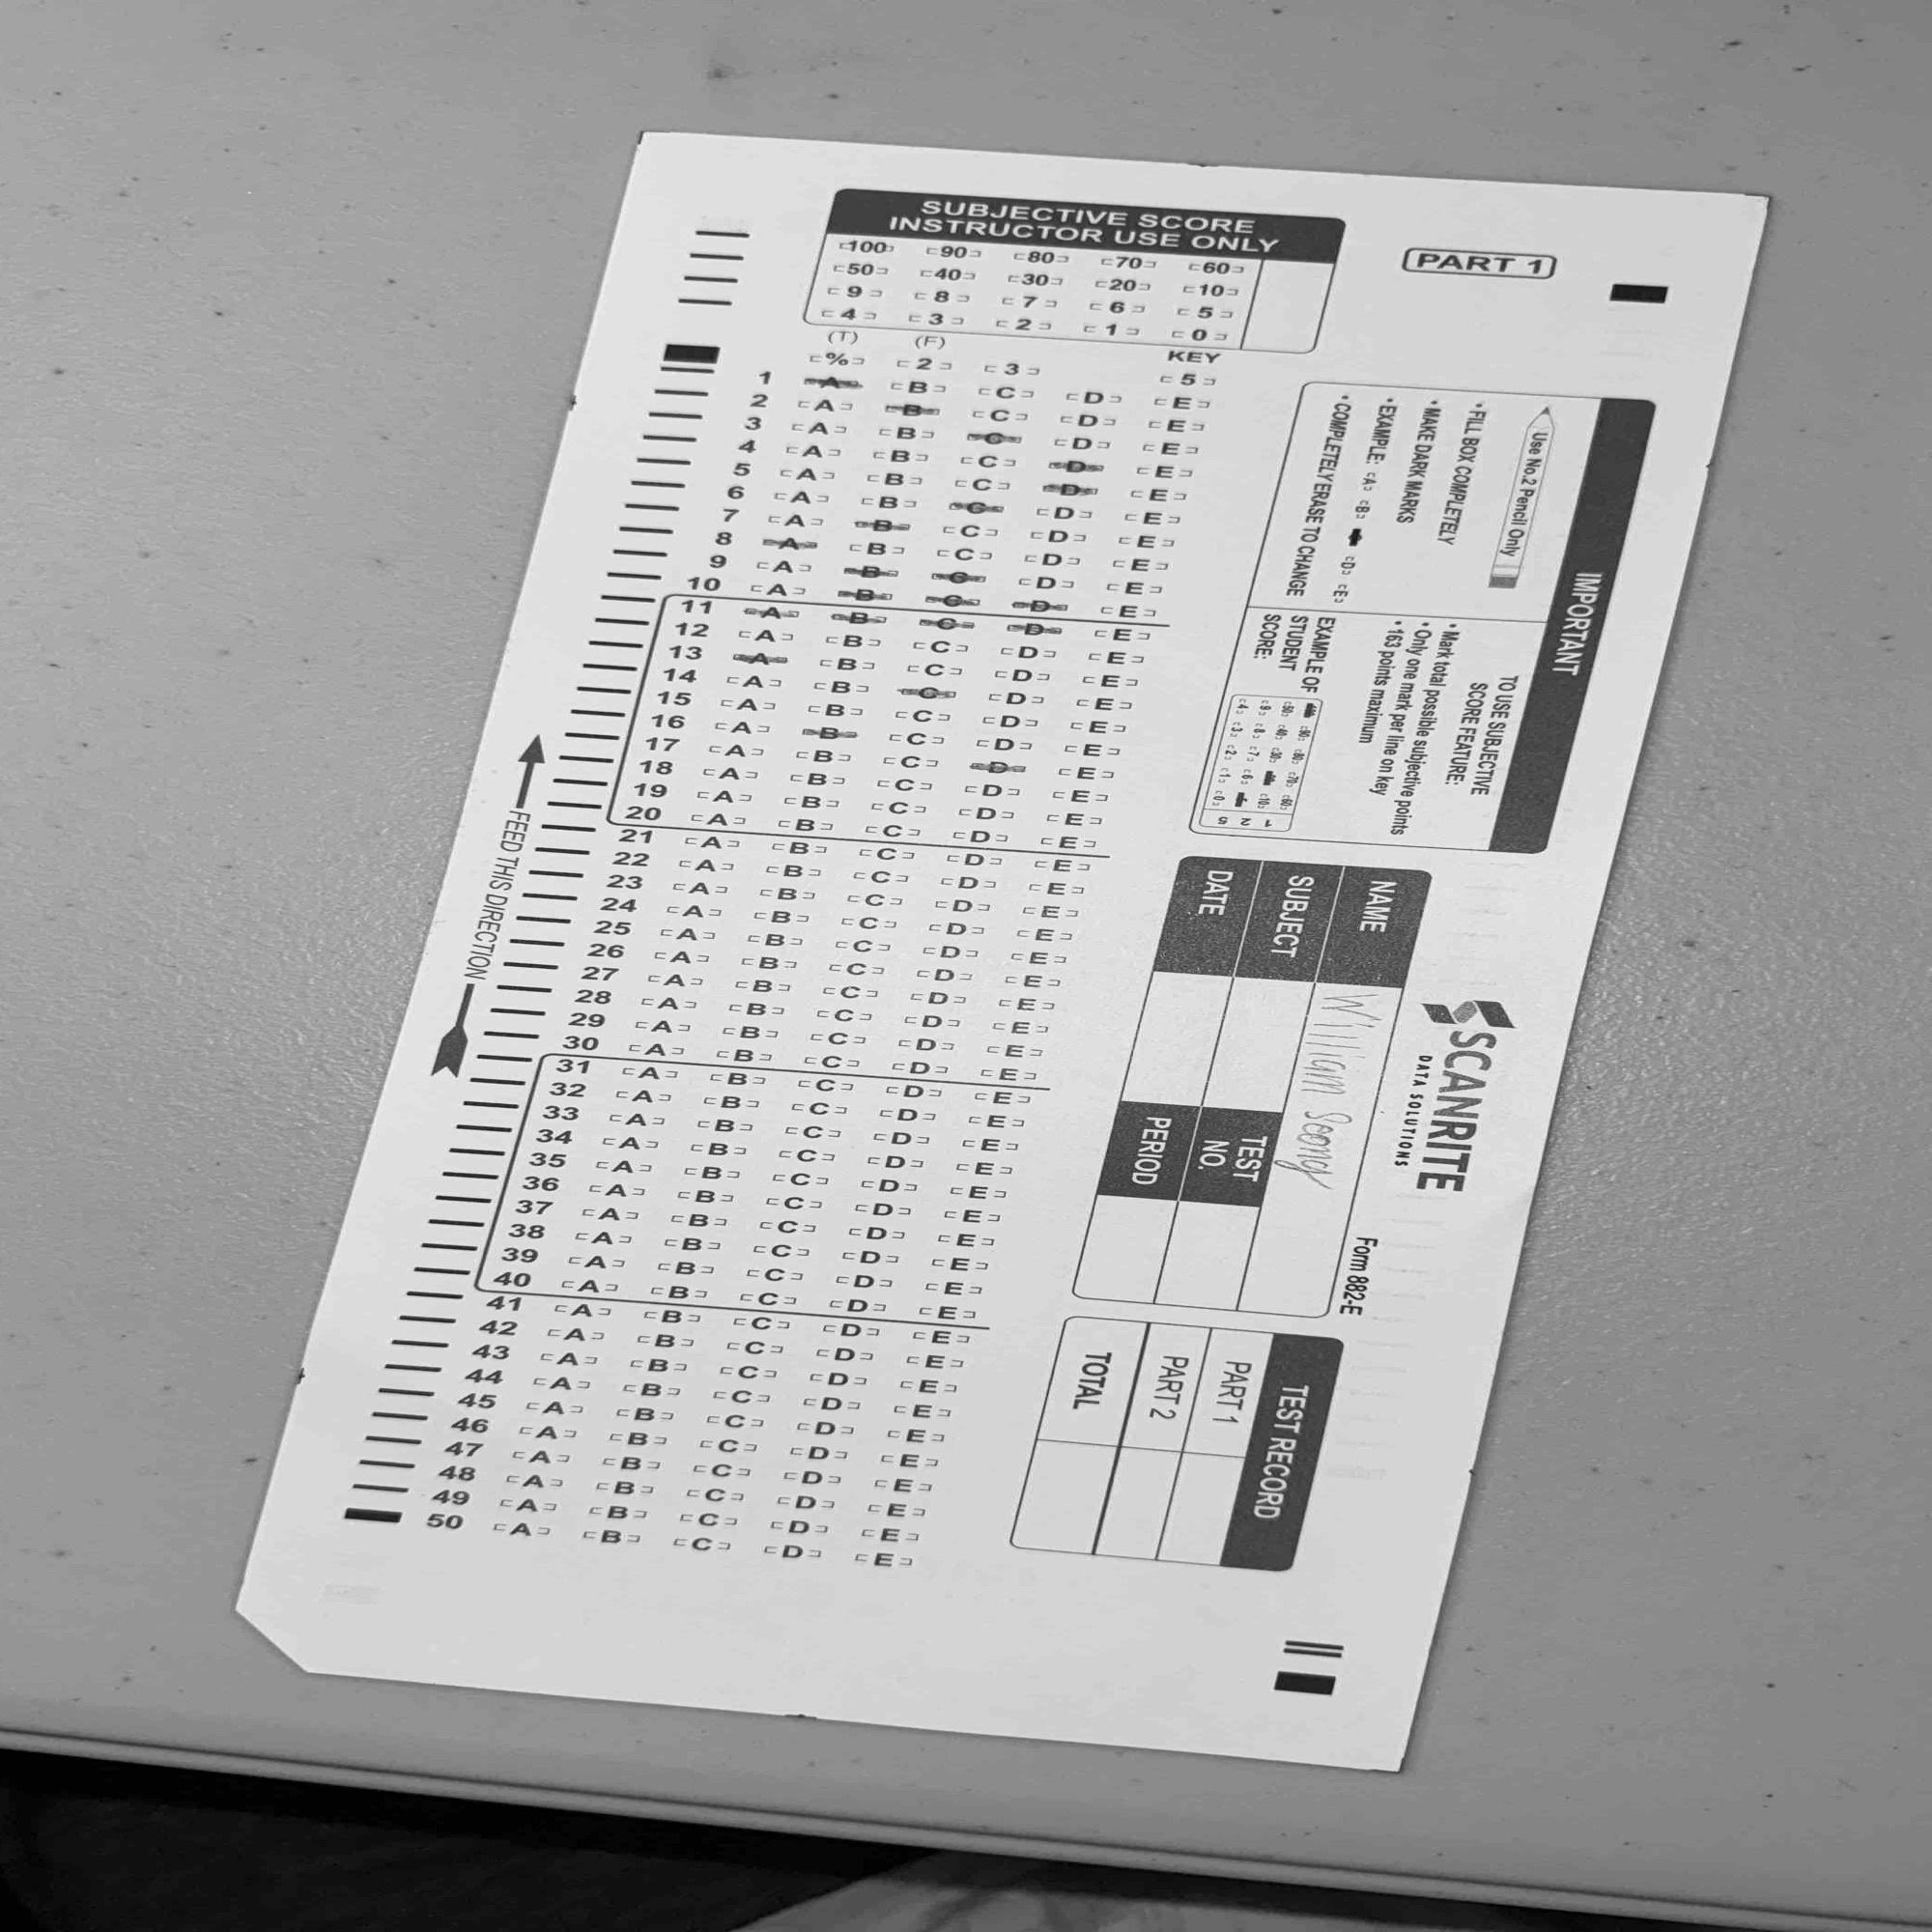 SUBJECTIVE SCORE
INSTRUCTOR USE ONLY
100 90 80 70 60
50 40 30 20 10
9 8 7 6 5
4 3 2 1 0
(T) (F) KEY
% 2 3 5
1 A B C D E
2 A B C D E
3 A B C D E
4 A B C D E
5 A B C D E
6 A B C D E
7 A B C D E
8 A B C D E
9 A B C D E
10 A B C D E
11 A B C D E
12 A B C D E
13 A B C D E
14 A B C D E
15 A B C D E
16 A B C D E
17 A B C D E
18 A B C D E
19 A B C D E
20 A B C D E
21 A B C D E
22 A B C D E
23 A B C D E
24 A B C D E
25 A B C D E
26 A B C D E
27 A B C D E
28 A B C D E
29 A B C D E
30 A B C D E
31 A B C D E
32 A B C D E
33 A B C D E
34 A B C D E
35 A B C D E
36 A B C D E
37 A B C D E
38 A B C D E
39 A B C D E
40 A B C D E
41 A B C D E
42 A B C D E
43 A B C D E
44 A B C D E
45 A B C D E
46 A B C D E
47 A B C D E
48 A B C D E
49 A B C D E
50 A B C D E
FEED THIS DIRECTION
PART 1
IMPORTANT
Use No.2 Pencil Only
• FILL BOX COMPLETELY
• MAKE DARK MARKS
• EXAMPLE: A B D E
• COMPLETELY ERASE TO CHANGE
TO USE SUBJECTIVE
SCORE FEATURE:
• Mark total possible subjective points
• Only one mark per line on key
• 163 points maximum
EXAMPLE OF
STUDENT
SCORE:
90 80 70 60
50 40 30 10 1
9 8 7 6 2
4 3 2 1 0 5
SCANRITE
DATA SOLUTIONS
Form 882-E
NAME William Seong
SUBJECT
TEST
NO.
DATE
PERIOD
TEST RECORD
PART 1
PART 2
TOTAL